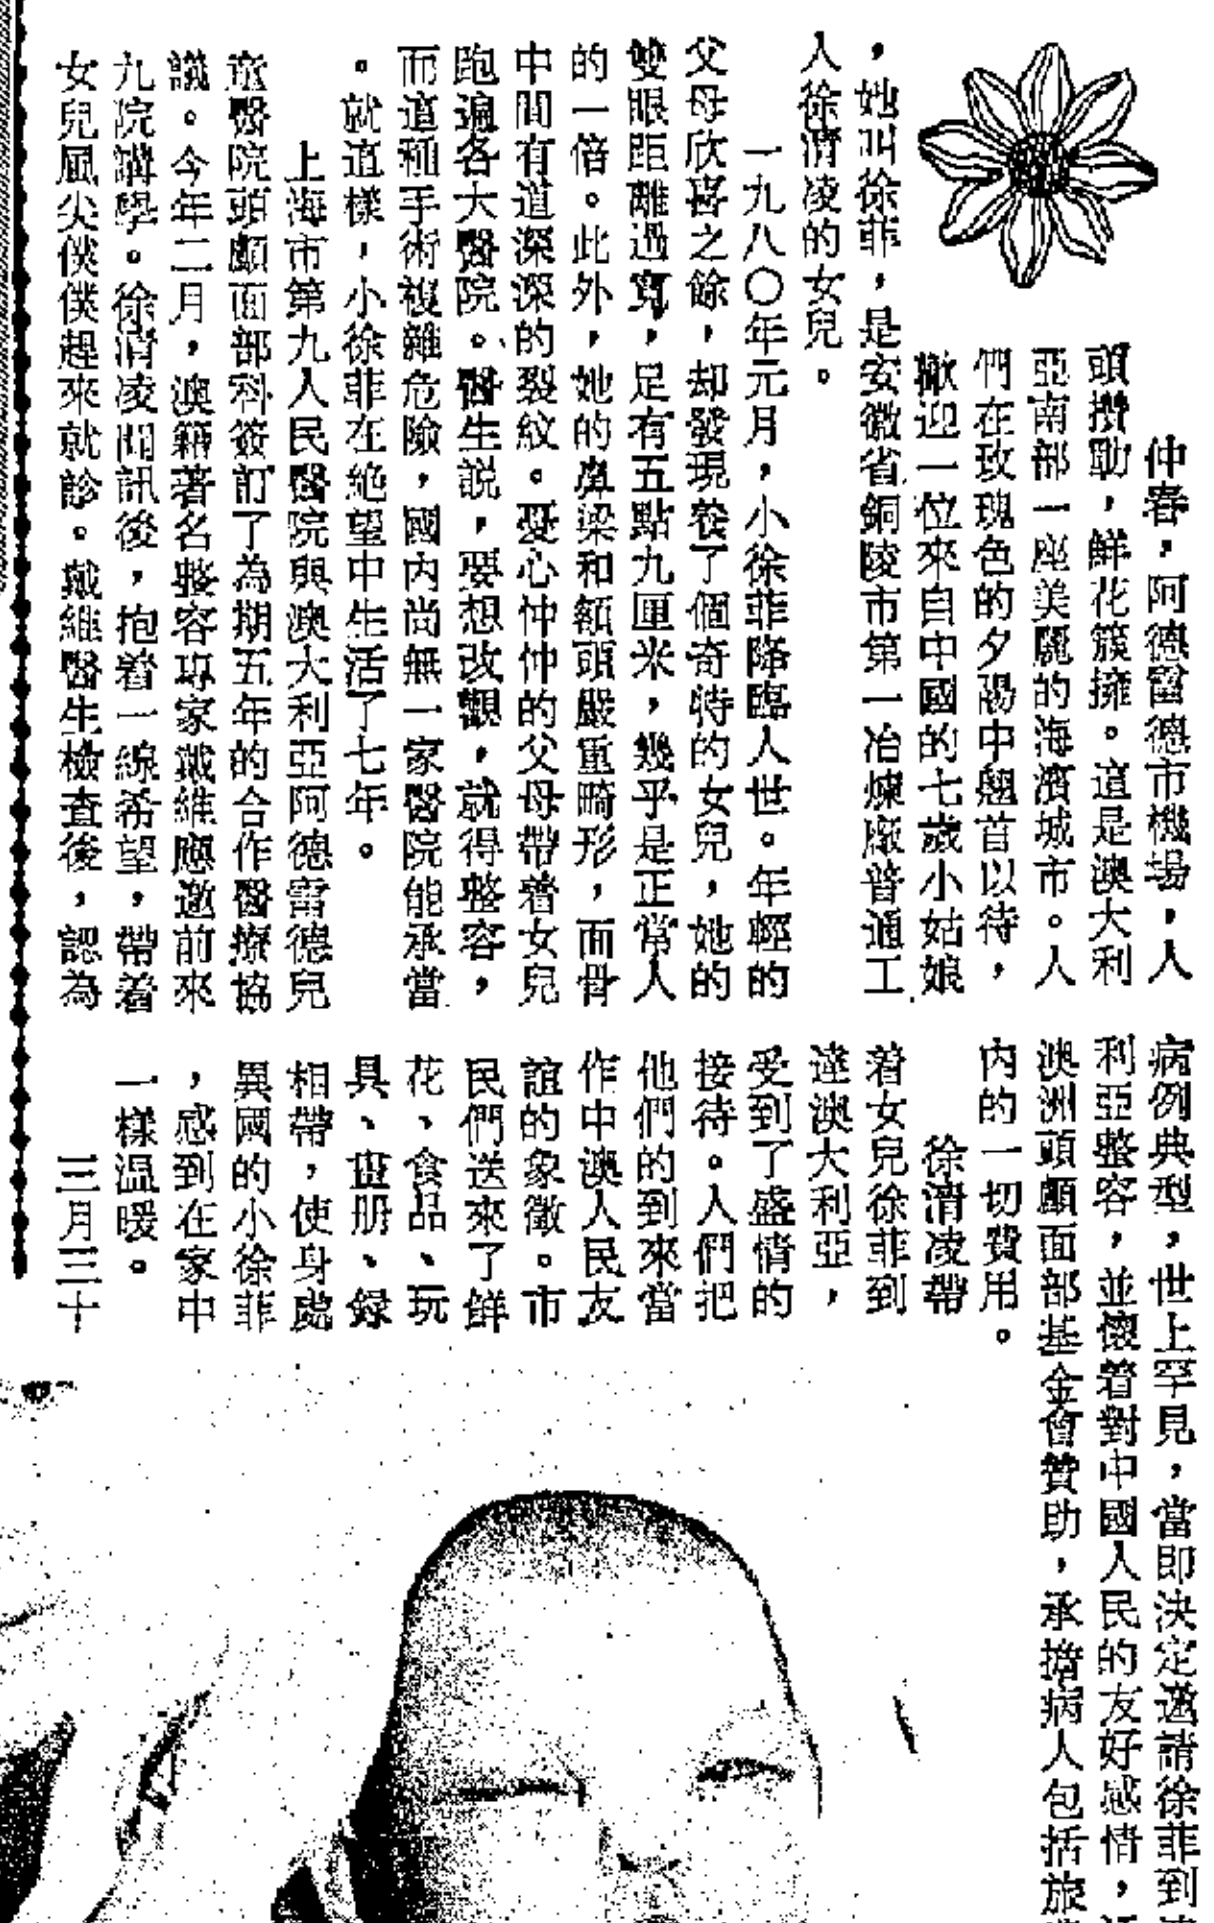 仲春，阿德雷德市機場，人
頭攢動，鮮花簇擁。這是澳大利
亞南部一座美麗的海濱城市。人
們在玫瑰色的夕陽中翹首以待，
歡迎一位來自中國的七歲小姑娘
，她叫徐菲，是安徽省銅陵市第一冶煉廠普通工
人徐清凌的女兒。
一九八〇年元月，小徐菲降臨人世。年輕的
父母欣喜之餘，却發現養了個奇特的女兒，她的
雙眼距離過寬，足有五點九厘米，幾乎是正常人
的一倍。此外，她的鼻梁和額頭嚴重畸形，面骨
中間有道深深的裂紋。憂心忡忡的父母帶着女兒
跑遍各大醫院。醫生説，要想改觀，就得整容，
而這種手術複雜危險，國内尚無一家醫院能承當
。就這樣，小徐菲在絶望中生活了七年。
上海市第九人民醫院與澳大利亞阿德雷德兒
童醫院頭顱面部科簽訂了為期五年的合作醫療協
議。今年二月，澳籍著名整容專家戴維應邀前來
九院講學。徐清凌聞訊後，抱着一線希望，帶着
女兒風尖僕僕趕來就診。戴維醫生檢查後，認為
病例典型，世上罕見，當即決定邀請徐菲到
利亞整容，並懷着對中國人民的友好感情，
澳洲頭顱面部基金會贊助，承擔病人包括旅
内的一切費用。
徐清凌帶
着女兒徐菲到
達澳大利亞，
受到了盛情的
接待。人們把
他們的到來當
作中澳人民友
誼的象徵。市
民們送來了鮮
花、食品、玩
具、畫册、録
相帶，使身處
異國的小徐菲
，感到在家中
一樣温暖。
三月三十